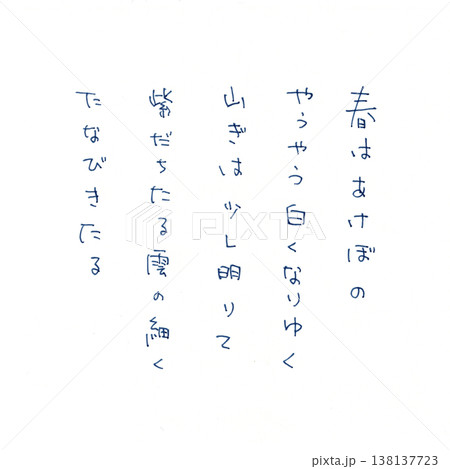 春はあけぼの
やうやう白くなりゆく
山ぎは少し明りて
紫だちたる雲の細く
たなびきたる
PIXTA
pixta.jp - 138137723